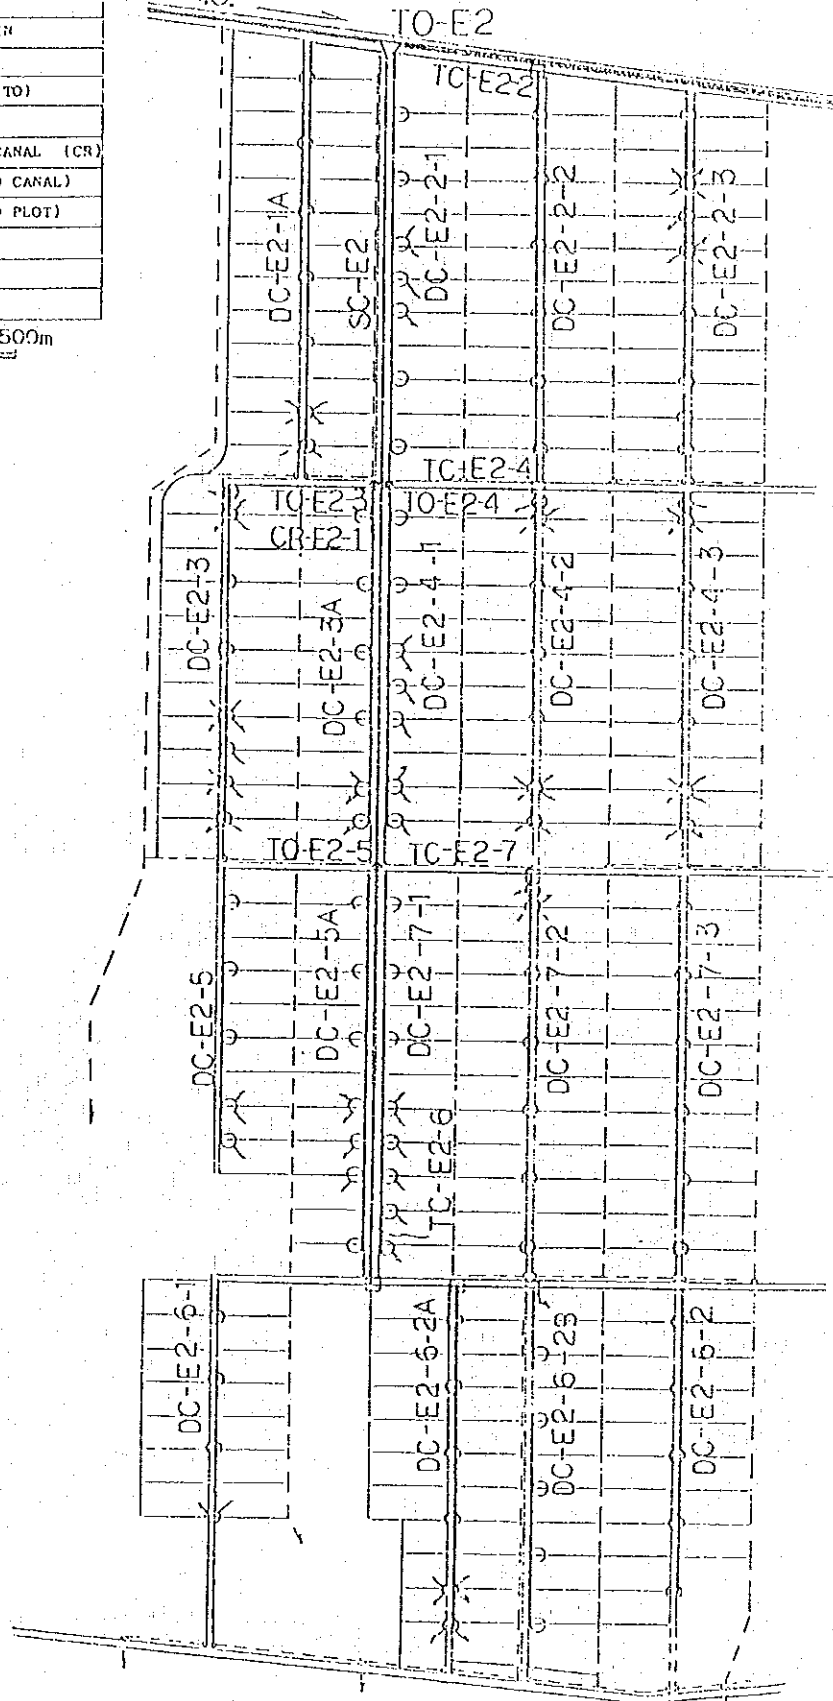 TO)
CANAL (CR)
CANAL)
PLOT)
500m
TO-E2
TC-E2-2
DC-E2-1A
SC-E2
DC-E2-2-1
DC-E2-2-2
DC-E2-2-3
TC-E2-4
TO-E2-3
TO-E2-4
CR-E2-1
DC-E2-3
DC-E2-3A
DC-E2-4-1
DC-E2-4-2
DC-E2-4-3
TO-E2-5
TC-E2-7
DC-E2-5
DC-E2-5A
DC-E2-7-1
DC-E2-7-2
DC-E2-7-3
TC-E2-6
DC-E2-6-1
DC-E2-6-2A
DC-E2-6-2B
DC-E2-6-2